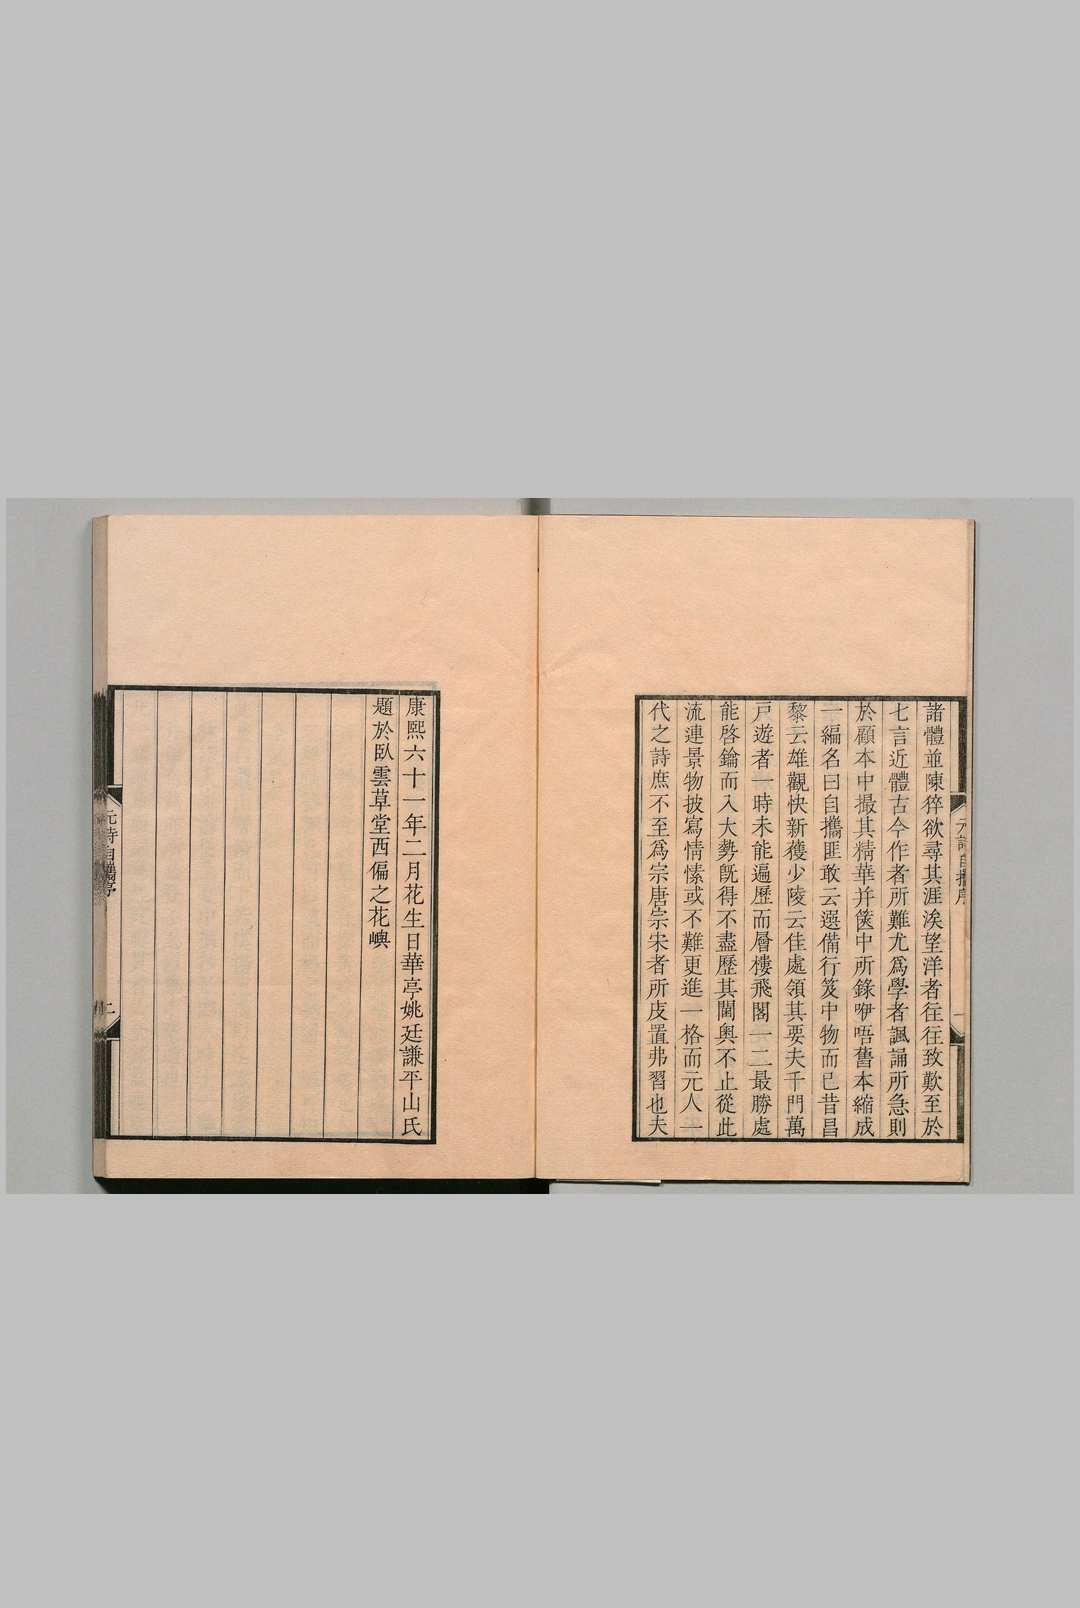 諸體並陳猝欲尋其涯涘望洋者徃徃致歎至於
七言近體古今作者所難尤爲學者諷誦所急則
於顧本中撮其精華并篋中所錄咿唔舊本縮成
一編名曰自攜匪敢云選備行笈中物而已昔昌
黎云雄觀快新獲少陵云佳處領其要夫千門萬
戸遊者一時未能遍歷而層樓飛閣一二最勝處
能啓鑰而入大勢旣得不盡歷其閫奧不止從此
流連景物披寫情愫或不難更進一格而元人一
代之詩庶不至爲宗唐宗宋者所庋置弗習也夫
康熙六十一年二月花生日華亭姚廷謙平山氏
題於臥雲草堂西偏之花嶼
元詩自攜序
二